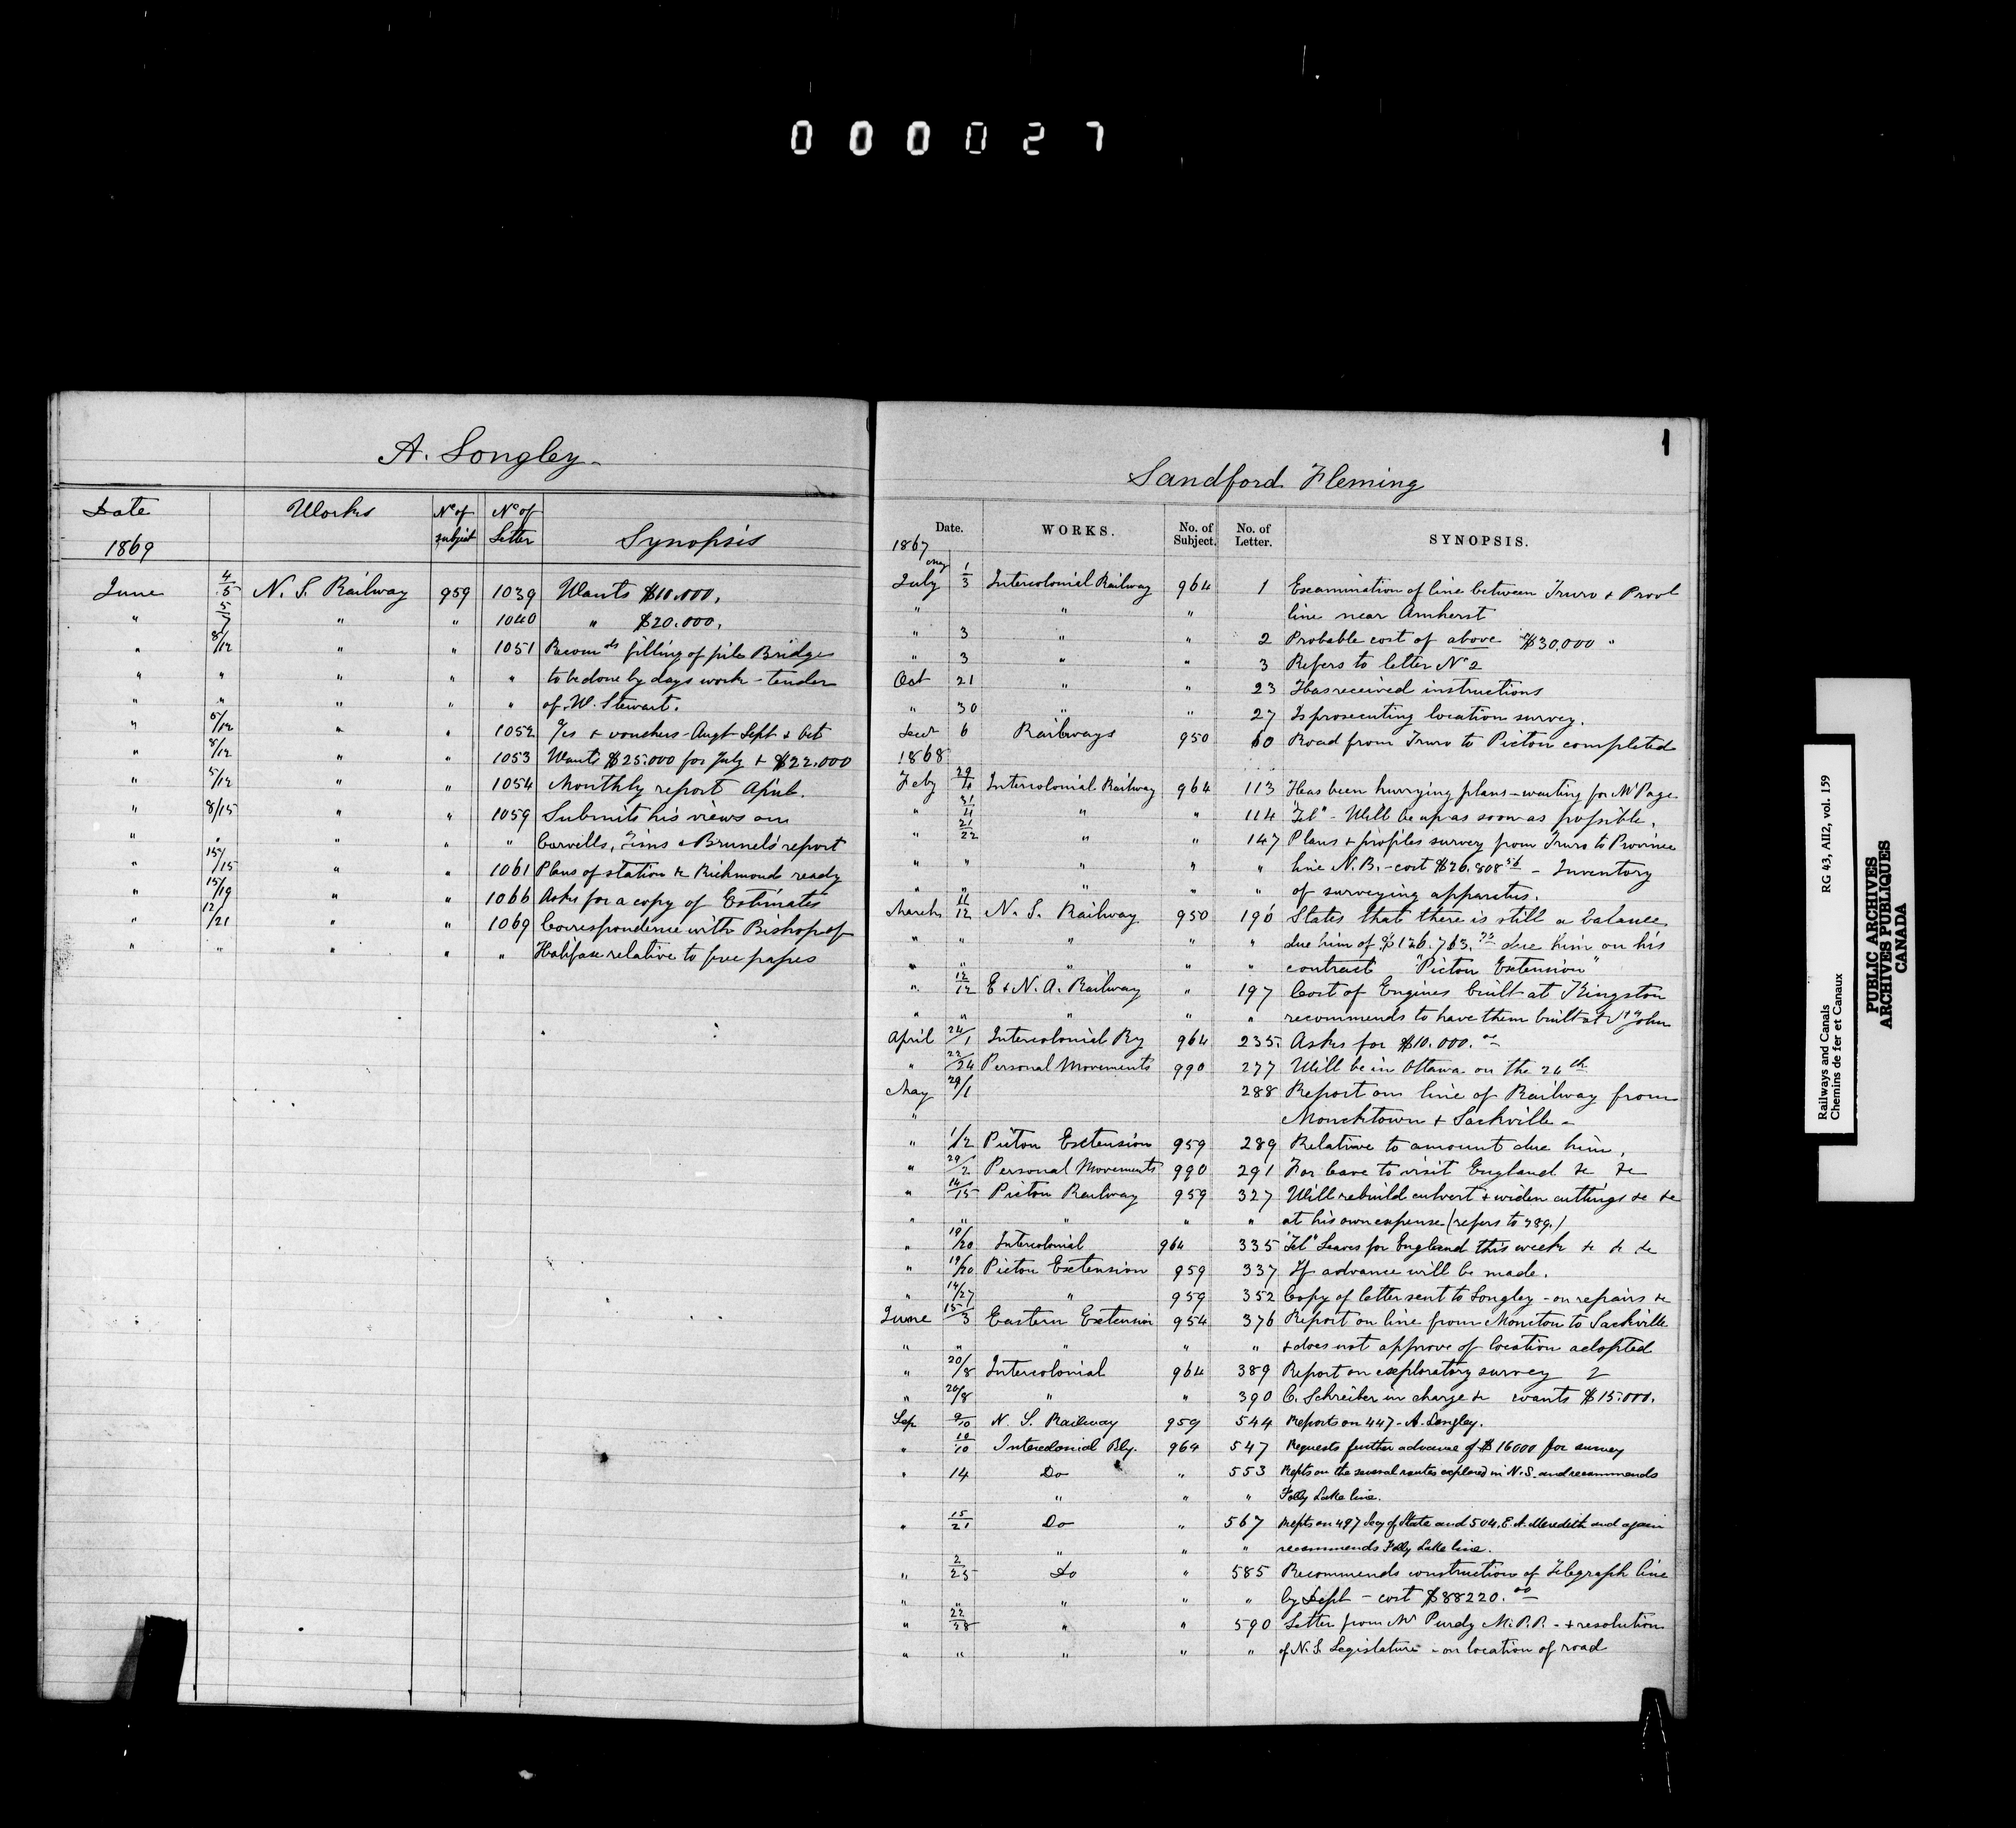 000027
A. Longley
Date Works No of subject No of Letter Synopsis
1869
June 4/5 N. S. Railway 959 1039 Wants $10.000.
" 5/7 " " 1040 " $20.000.
" 8/12 " " 1051 Recomds filling of pile Bridge
" " " " " to be done by days work - tender
" " " " of W. Stewart.
" 5/12 " " 1052 % + vouchers - Augt Sept + Oct
" 8/12 " " 1053 Wants $25.000 for July + $22.000
" 5/12 " " 1054 Monthly report April.
" 8/15 " " 1059 Submits his views on
" " " " " Carvells, & Brunel's report
" 15/15 " " 1061 Plans of station &c Richmond ready
" 15/19 " " 1066 Asks for a copy of Estimates
" 12/21 " " 1069 Correspondence with Bishop of
" " " " " Halifax relative to free passes
1
Sandford Fleming
Date. WORKS. No. of Subject. No. of Letter. SYNOPSIS.
1867
July 1/3 Intercolonial Railway 964 1 Examination of line between Truro + Provl
" " " line near Amherst
" 3 " " 2 Probable cost of above "$30,000"
" 3 " " 3 Refers to letter No 2
Oct 21 " " 23 Has received instructions
" 30 " " 27 Is prosecuting location survey.
Decr 6 Railways 950 60 Road from Truro to Picton completed
1868
Feby 29/4 Intercolonial Railway 964 113 Has been hurrying plans - waiting for Mr Page
" 31/4 " " 114 "Tel" - Will be up as soon as possible.
" 21/22 " " 147 Plans + profiles survey from Truro to Province
" " " " " line N.B. - cost $26.808 56 - Inventory
" " " " of surveying apparatus.
March 11/12 N. S. Railway 950 196 States that there is still a balance
" " " " " due him of $126.763. due him on his
" " " " contract "Picton Extension"
" 12/12 E + N. A. Railway " 197 Cost of Engines built at Kingston
" " " " recommends to have them built at St John
April 24/1 Intercolonial Ry 964 235. Asks for $10.000.00
" 22/24 Personal Movements 990 277 Will be in Ottawa on the 24th
May 29/1 288 Report on line of Railway from
" Moncktown + Sackville -
" 1/2 Picton Extension 959 289 Relative to amount due him.
" 29/2 Personal Movements 990 291 For leave to visit England &c &c
" 14/15 Picton Railway 959 327 Will rebuild culvert + widen cuttings &c &c
" " " " " at his own expense (refers to 289.)
" 19/20 Intercolonial 964 335 "Tel" Leaves for England this week &c &c &c
" 19/20 Picton Extension 959 337 If advance will be made.
" 14/27 " 959 352 Copy of letter sent to Longley - on repairs &c
June 15/3 Eastern Extension 954 376 Report on line from Moncton to Sackville
" " " " + does not approve of location adopted
" 20/8 Intercolonial 964 389 Report on exploratory survey 2
" 20/8 " " 390 C. Schreiber in charge &c wants $15.000.
Sep 9/10 N. S. Railway 959 544 Reports on 447 - A. Longley.
" 10/10 Intercolonial Rly. 964 547 Requests further advance of $16000 for survey
" 14 Do " 553 Repts on the several routes explored in N.S. and recommends
" " " Folly Lake line.
" 15/21 Do " 567 Repts on 497 Secy of State and 504. E. A. Meredith and again
" " " recommends Folly Lake line.
" 2/25 Do " 585 Recommends construction of Telegraph line
" " " " " by Dept - cost $88220.00
" 22/28 " " 590 Letter from Mr Purdy M.P.P. - + resolution
" " " " " of N.S. Legislature - on location of road
Railways and Canals RG 43, AII2, vol. 159
Chemins de fer et Canaux
PUBLIC ARCHIVES
ARCHIVES PUBLIQUES
CANADA